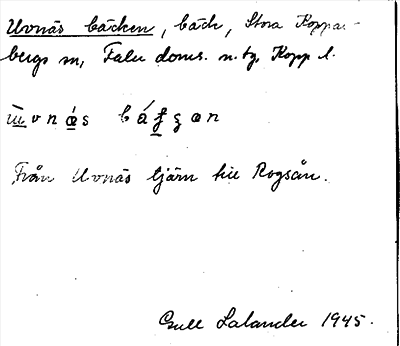 Uvnäs bäcken, bäck, Stora Koppar-
bergs sn, Falu doms. n. tg, Kopp l.
Från Uvnäs tjärn till Rogsån.
Gull Lalander 1945.